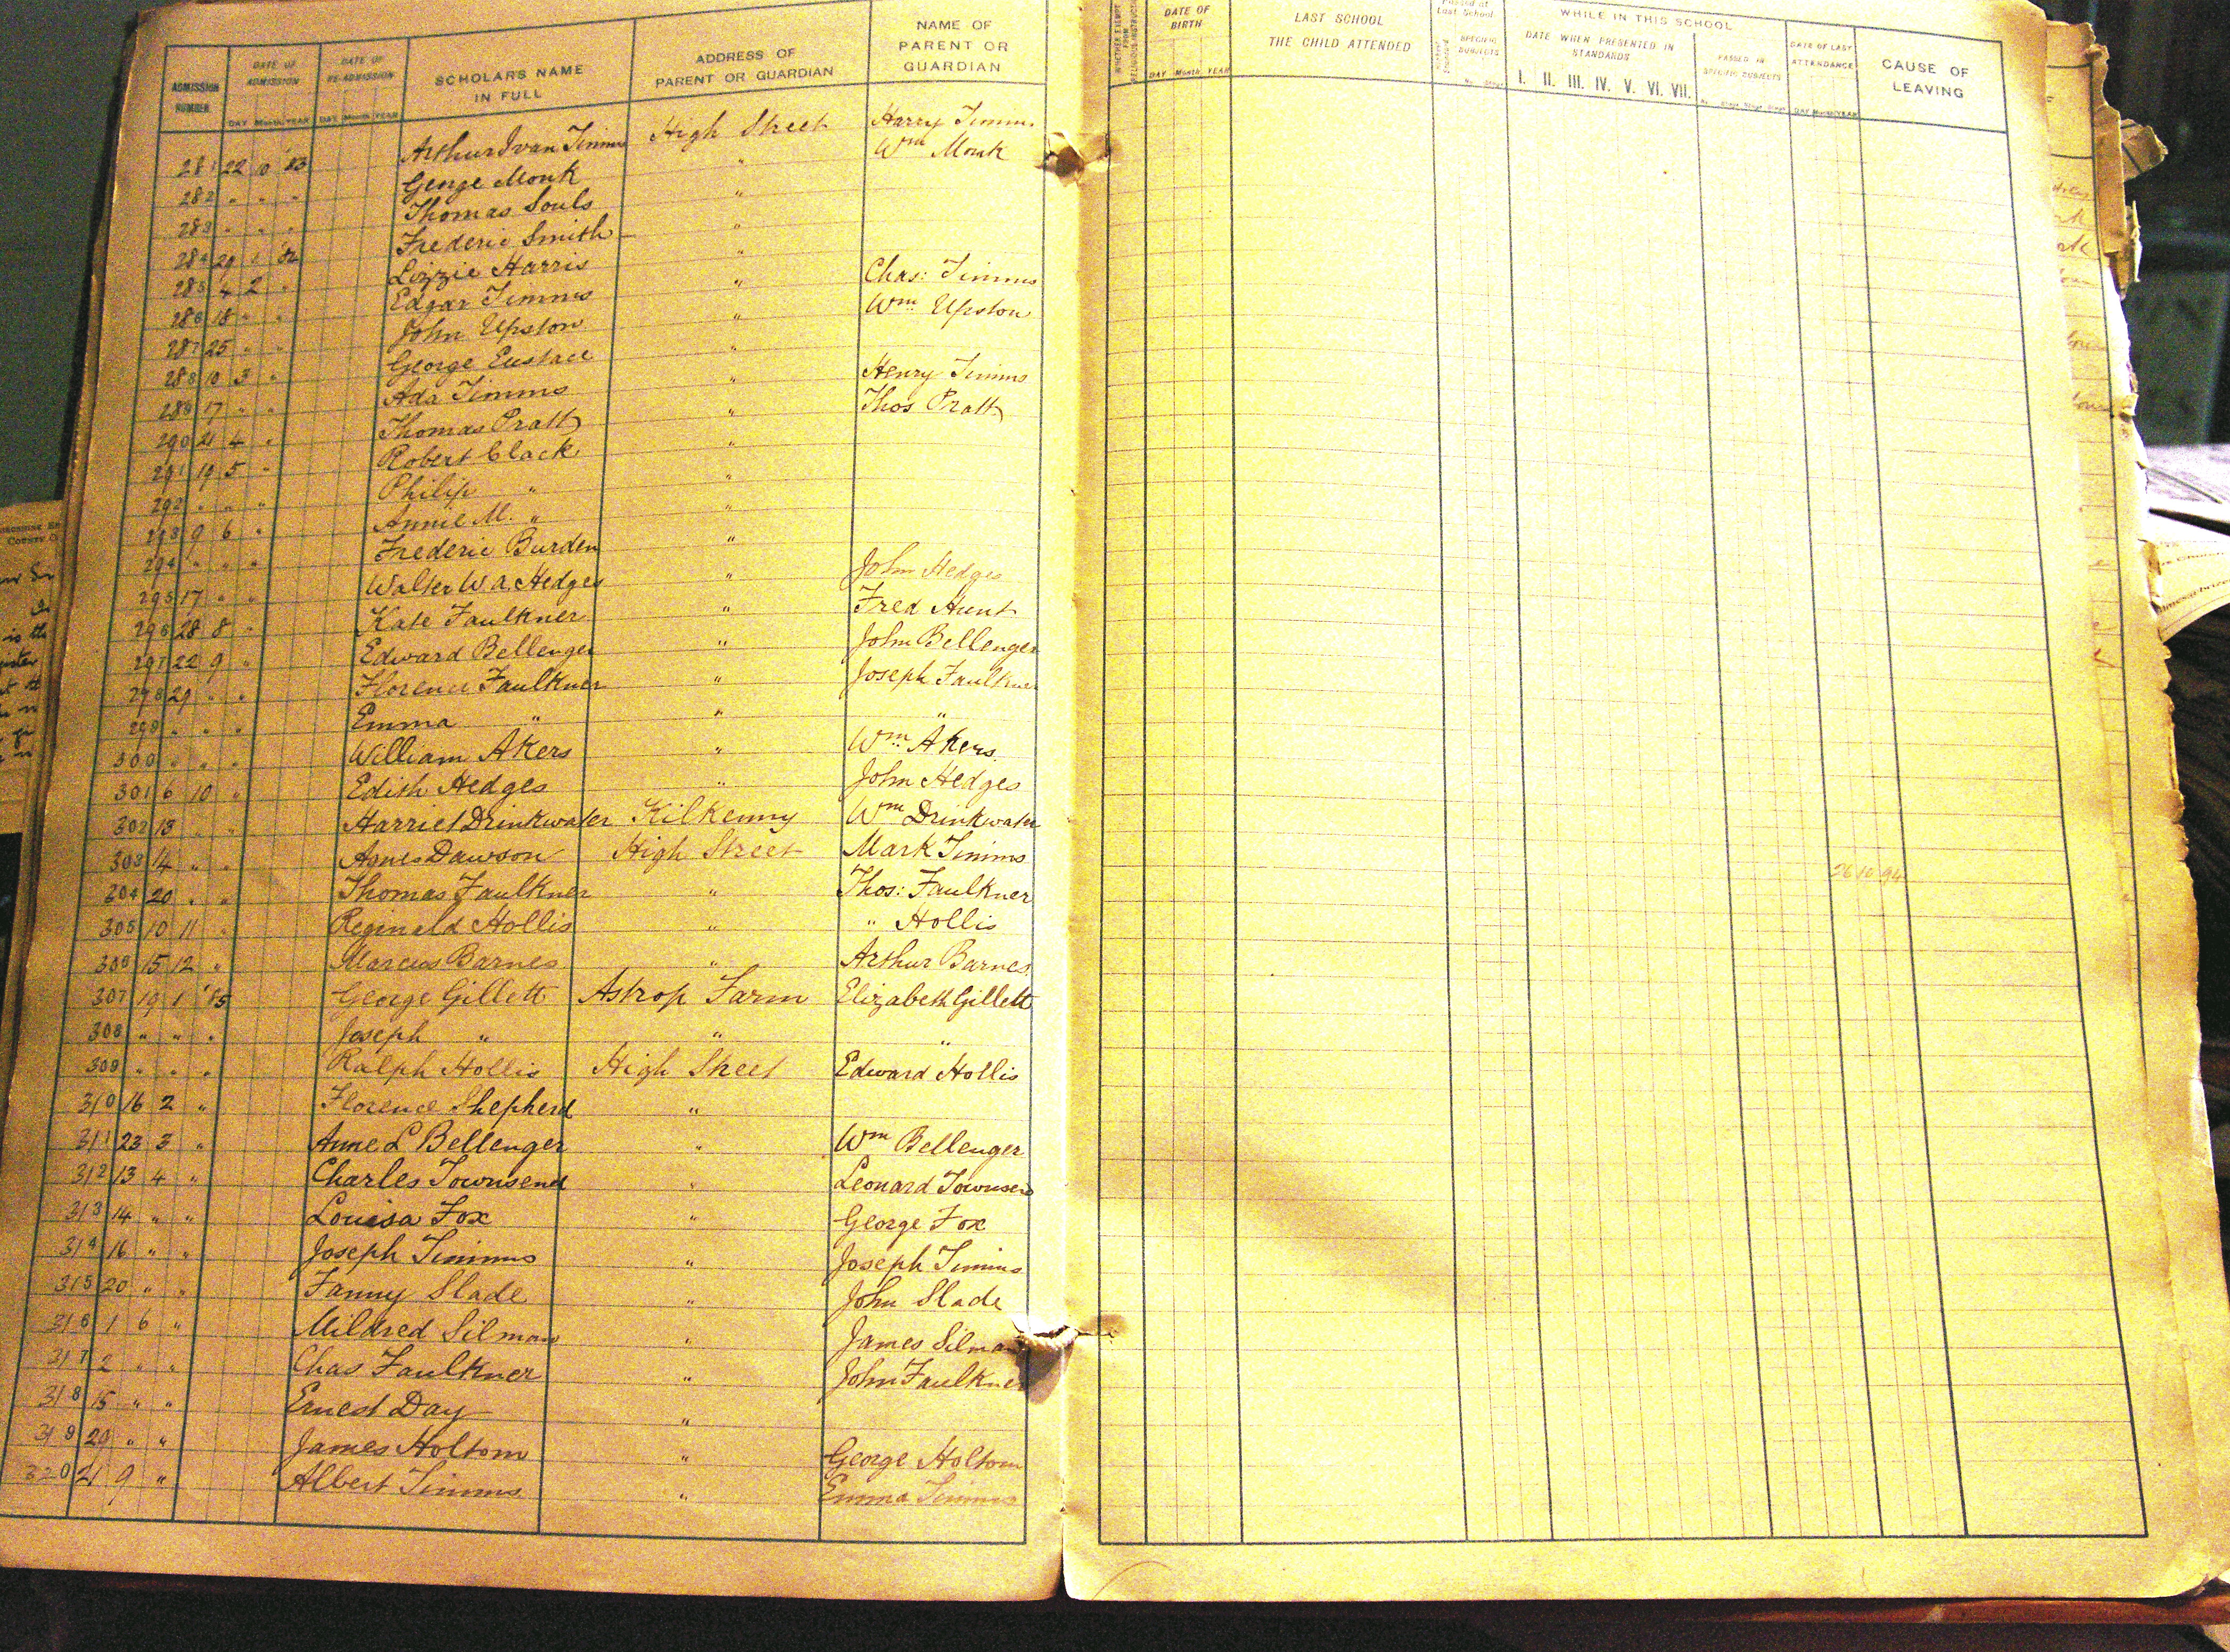 ADMISSION NUMBER
DATE OF ADMISSION
DAY Month YEAR
DATE OF RE-ADMISSION
DAY Month YEAR
SCHOLARS NAME IN FULL
ADDRESS OF PARENT OR GUARDIAN
NAME OF PARENT OR GUARDIAN
281 22 10 83 Arthur Ivan Timms High Street Harry Timms
282 " " " George Monk " Wm Monk
283 " " " Thomas Souls "
284 29 1 '84 Frederic Smith "
285 4 2 " Lizzie Harris "
286 18 " " Edgar Timms " Chas: Timms
287 25 " " John Upston " Wm Upston
288 10 3 " George Eustace "
289 17 " " Ada Timms " Henry Timms
290 21 4 " Thomas Pratt " Thos Pratt
291 19 5 " Robert Clack "
292 " " " Philip " "
293 9 6 " Annie M. " "
294 " " " Frederic Burden "
295 17 " " Walter W. A. Hedges " John Hedges
296 28 8 " Kate Faulkner " Fred Hunt
297 22 9 " Edward Bellenger " John Bellenger
298 29 " " Florence Faulkner " Joseph Faulkner
299 " " " Emma " " "
300 " " " William Akers " Wm Akers.
301 6 10 " Edith Hedges " John Hedges
302 13 " " Harriet Drinkwater Kilkenny Wm Drinkwater
303 14 " " Agnes Dawson High Street Mark Timms
304 20 " " Thomas Faulkner " Thos: Faulkner
305 10 11 " Reginald Hollis " " Hollis
306 15 12 " Marcus Barnes " Arthur Barnes
307 19 1 '85 George Gillett Astrop Farm Elizabeth Gillett
308 " " " Joseph " " "
309 " " " Ralph Hollis High Street Edward Hollis
310 16 2 " Florence Shepherd "
311 23 3 " Anne L Bellenger " Wm Bellenger
312 13 4 " Charles Townsend " Leonard Townsend
313 14 " " Louisa Fox " George Fox
314 16 " " Joseph Timms " Joseph Timms
315 20 " " Fanny Slade " John Slade
316 1 6 " Mildred Silman " James Silman
317 2 " " Chas Faulkner " John Faulkner
318 15 " " Ernest Day "
319 29 " " James Holtom " George Holtom
320 21 9 " Albert Timms " Emma Timms
WHETHER EXEMPT FROM RELIGIOUS INSTRUCTION
DATE OF BIRTH
DAY Month YEAR
LAST SCHOOL
THE CHILD ATTENDED
Last School
SPECIFIC SUBJECTS
WHILE IN THIS SCHOOL
DATE WHEN PRESENTED IN STANDARDS
I. II. III. IV. V. VI. VII.
PASSED IN SPECIFIC SUBJECTS
DATE OF LAST ATTENDANCE
DAY Month YEAR
CAUSE OF LEAVING
26 10 94